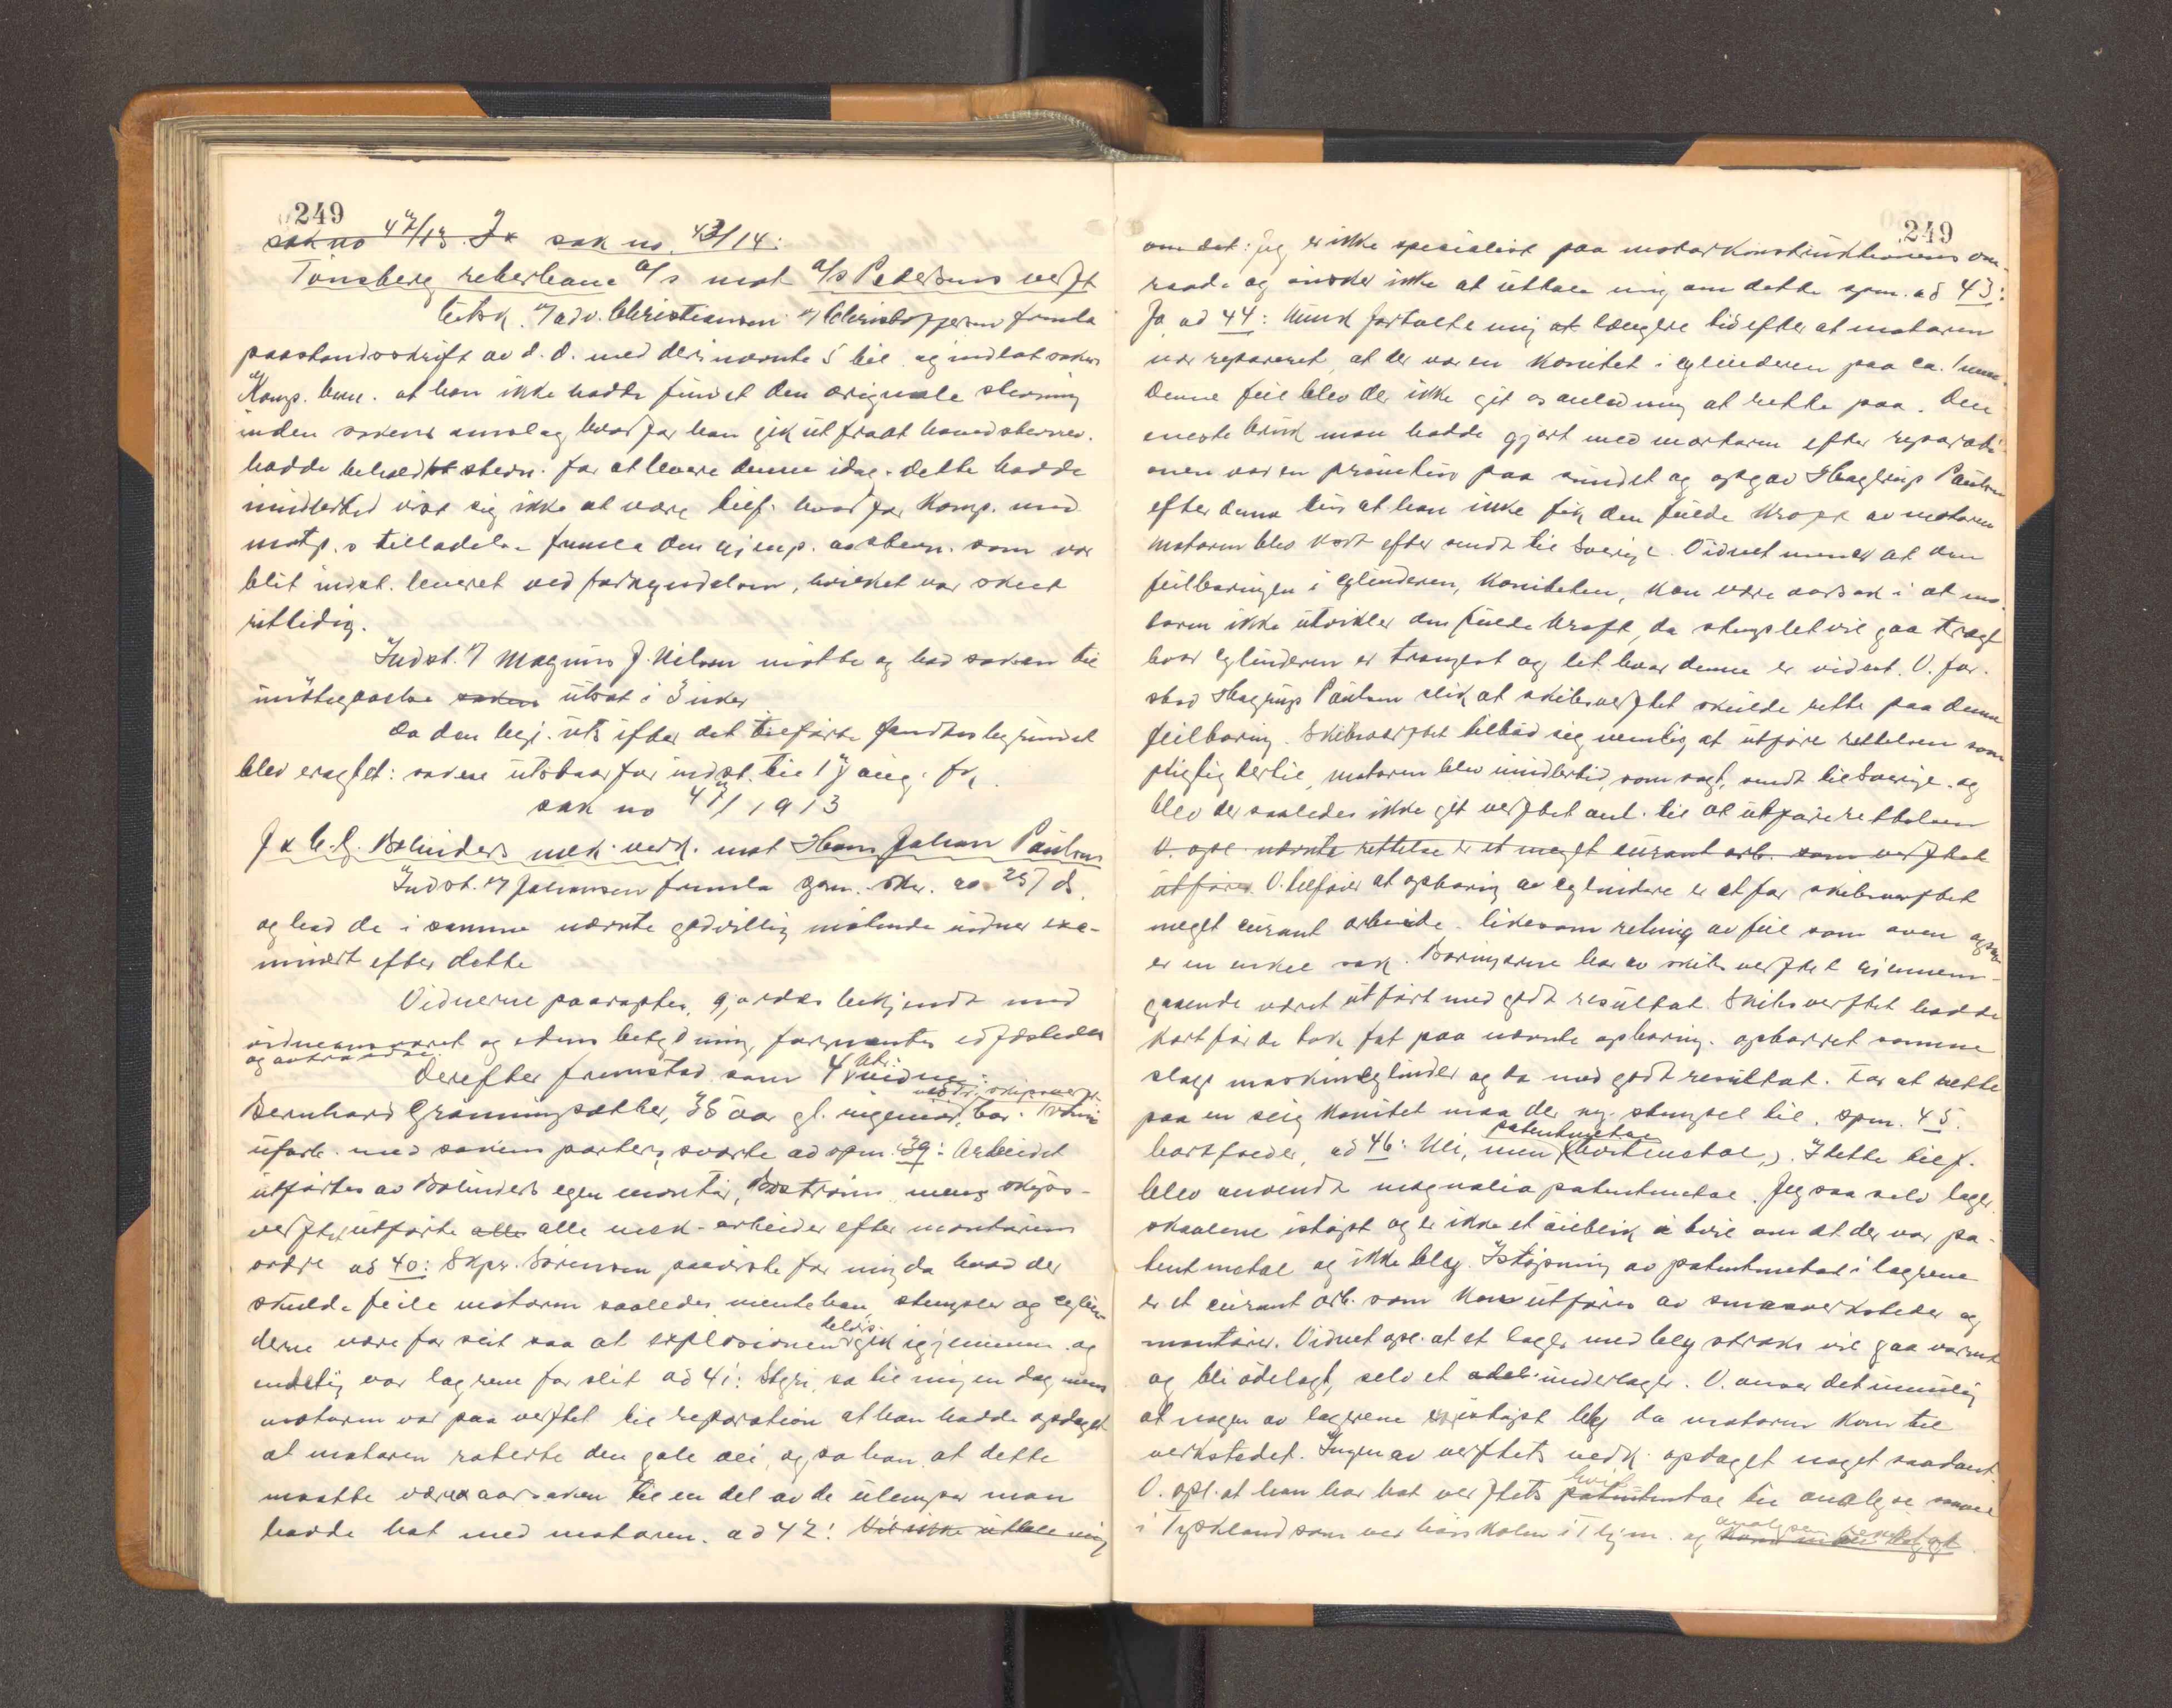 249
sak no 47/13. J & sak no 43/14:
Tönsberg reberbane A/s mot A/s Pedersens verft
Citok. v/ adv. Christiansen v/ Christoffersen fremla
paastandsskrift av d. d. med deri nævnte 5 bil. og indlot saken
Komp. bem. at han ikke hadde fundet den originale stevning
inden sakens anvol og hvorfor han gik ut fra at hovedstevnev.
hadde beholdt stevn. for at levere denne idag. Dette hadde
imidlertid vist sig ikke at være tilf. hvorfor Komp. med
motp.s tilladelse fremla den gjenp. av stevn. som var
blit indst. leveret ved forkyndelsen, hvilket var skeet
rittidig.
Indst. v/ Magnus J. Nilsen mötte og bad saken til
imötegaaelse saken utsat i 3 uker
Da den begj. uts. efter det tilförte fandtes begrundet
blev eragtet: saken utstaar for indst. til 17 aug. fk.
sak no 47/1913
J & C. G. Bolinders mek. verk. mot Hans Johan Paulsen
Indst. v/ Johansen fremla spm. skr. av 25/7 ds.
og bad de i samme nævnte godvillig mötende vidner exa-
minert efter dette
Vidnerne paaraaptes, gjordes bekjendt med
vidneansvaret og edens betydning, formantes edfæstedes
og avtraadte.
Derefter fremstod som 4 vidne:
Bernhard Grønningsæther, 35 aar gl. ingeniør, ved skipsverft bor i Tr.hjm
uforb. med sakens parter, svarte ad spm. 39: Arbeidet
utförtes av Bolinders egen montör, Boström mens skips-
verftet utförte alle alle mek. arbeider efter montörens
ordre ad 40: Skpr. Sörensen paaviste for mig da hvad der
skulde feile motoren saaledes mente han, stempler og cylin-
derne være for slit saa at explosionen delvis gik igjennem og
endelig var lagrene for slit ad 41: Stgri, sa til mig en dag mens
motoren var paa verftet til reparation at han hadde opdaget
at motoren roterte den gale vei, og sa han, at dette
maatte være aarsaken til en del av de ulemper man
hadde hat med motoren. ad 42: Vil ikke uttale mig
249
om det: Jeg er ikke specialist paa motorkonstruktionens om-
raade og önsker ikke at uttale mig om dette spm. ad 43:
Ja ad 44: Munk fortalte mig at længere tid efter at motoren
var reparert, at der var en konitet i cylinderen paa ca. 1 mm.
Denne feil blev der ikke git os anledning at rette paa. Den
eneste bruk man hadde gjort med mortoren efter reparati-
onen var en prövetur paa sundet og opgav Hagerup Paulsen
efter denne tur at han ikke fik den fulde kraft av motoren
Motoren blev kort efter sendt til Sverige. Vidnet mener at den
feilboringen i cylinderen, koniteten, kan være aarsak i at mo-
toren ikke utvikler den fulde kraft, da stemplet vil gaa trægt
hvor cylinderen er trangest og let hvor denne er videst. V. for-
stod Hagerup Paulsen slik at skibsverftet skulde rette paa denne
feilboring. Skibsverftet tilböd sig nemlig at utföre rettelsen som
pligtig dertil, motoren blev imidlertid, som sagt, sendt til Sverige og
blev der saaledes ikke git verftet anl. til at utföre rettelsen
V. opl. nævnte rettelse er et meget kurant arb. som verftet
utförer V. tilföier at opboring av cylindere er et for skibsverftet
meget kurant arbeide. likesom retning av feil som oven opsagt
er en enkel sak. Boringerne har av skibsverftet gjennem-
gaaende været utfört med godt resultat. Skibsverftet hadde
kort för de tok fat paa nævnte opboring, opborret samme
slags maskincylinder og da med godt resultat. For at rette
paa en slig konitet maa der ny stempel til. spm. 45.
bortfalder, ad 46: Nei, men patentmetal (hvitmetal,). I dette tilf.
blev anvendt magnolia patentmetal. Jeg saa selv lager-
skaalene istöpt og er ikke et öieblik i tvil om at der var pa-
tentmetal og ikke bly. Istöpning av patentmetal i lagrene
er et kurant arb. som kan utföres av smaaverksteder og
montörer. Vidnet opl. at et lager med bly straks vil gaa varmt
og bli ödelagt, selv et underlager. V. anser det umulig
at nogen av lagrene er istöpt bly da motoren kom til
verkstedet. Ingen av verftets vedk. opdaget noget saadant.
V. opl. at han har hat verftets hvit patentmetal til analyse saavel
i Tyskland som ver höiskolen i T.hjm. og analysen